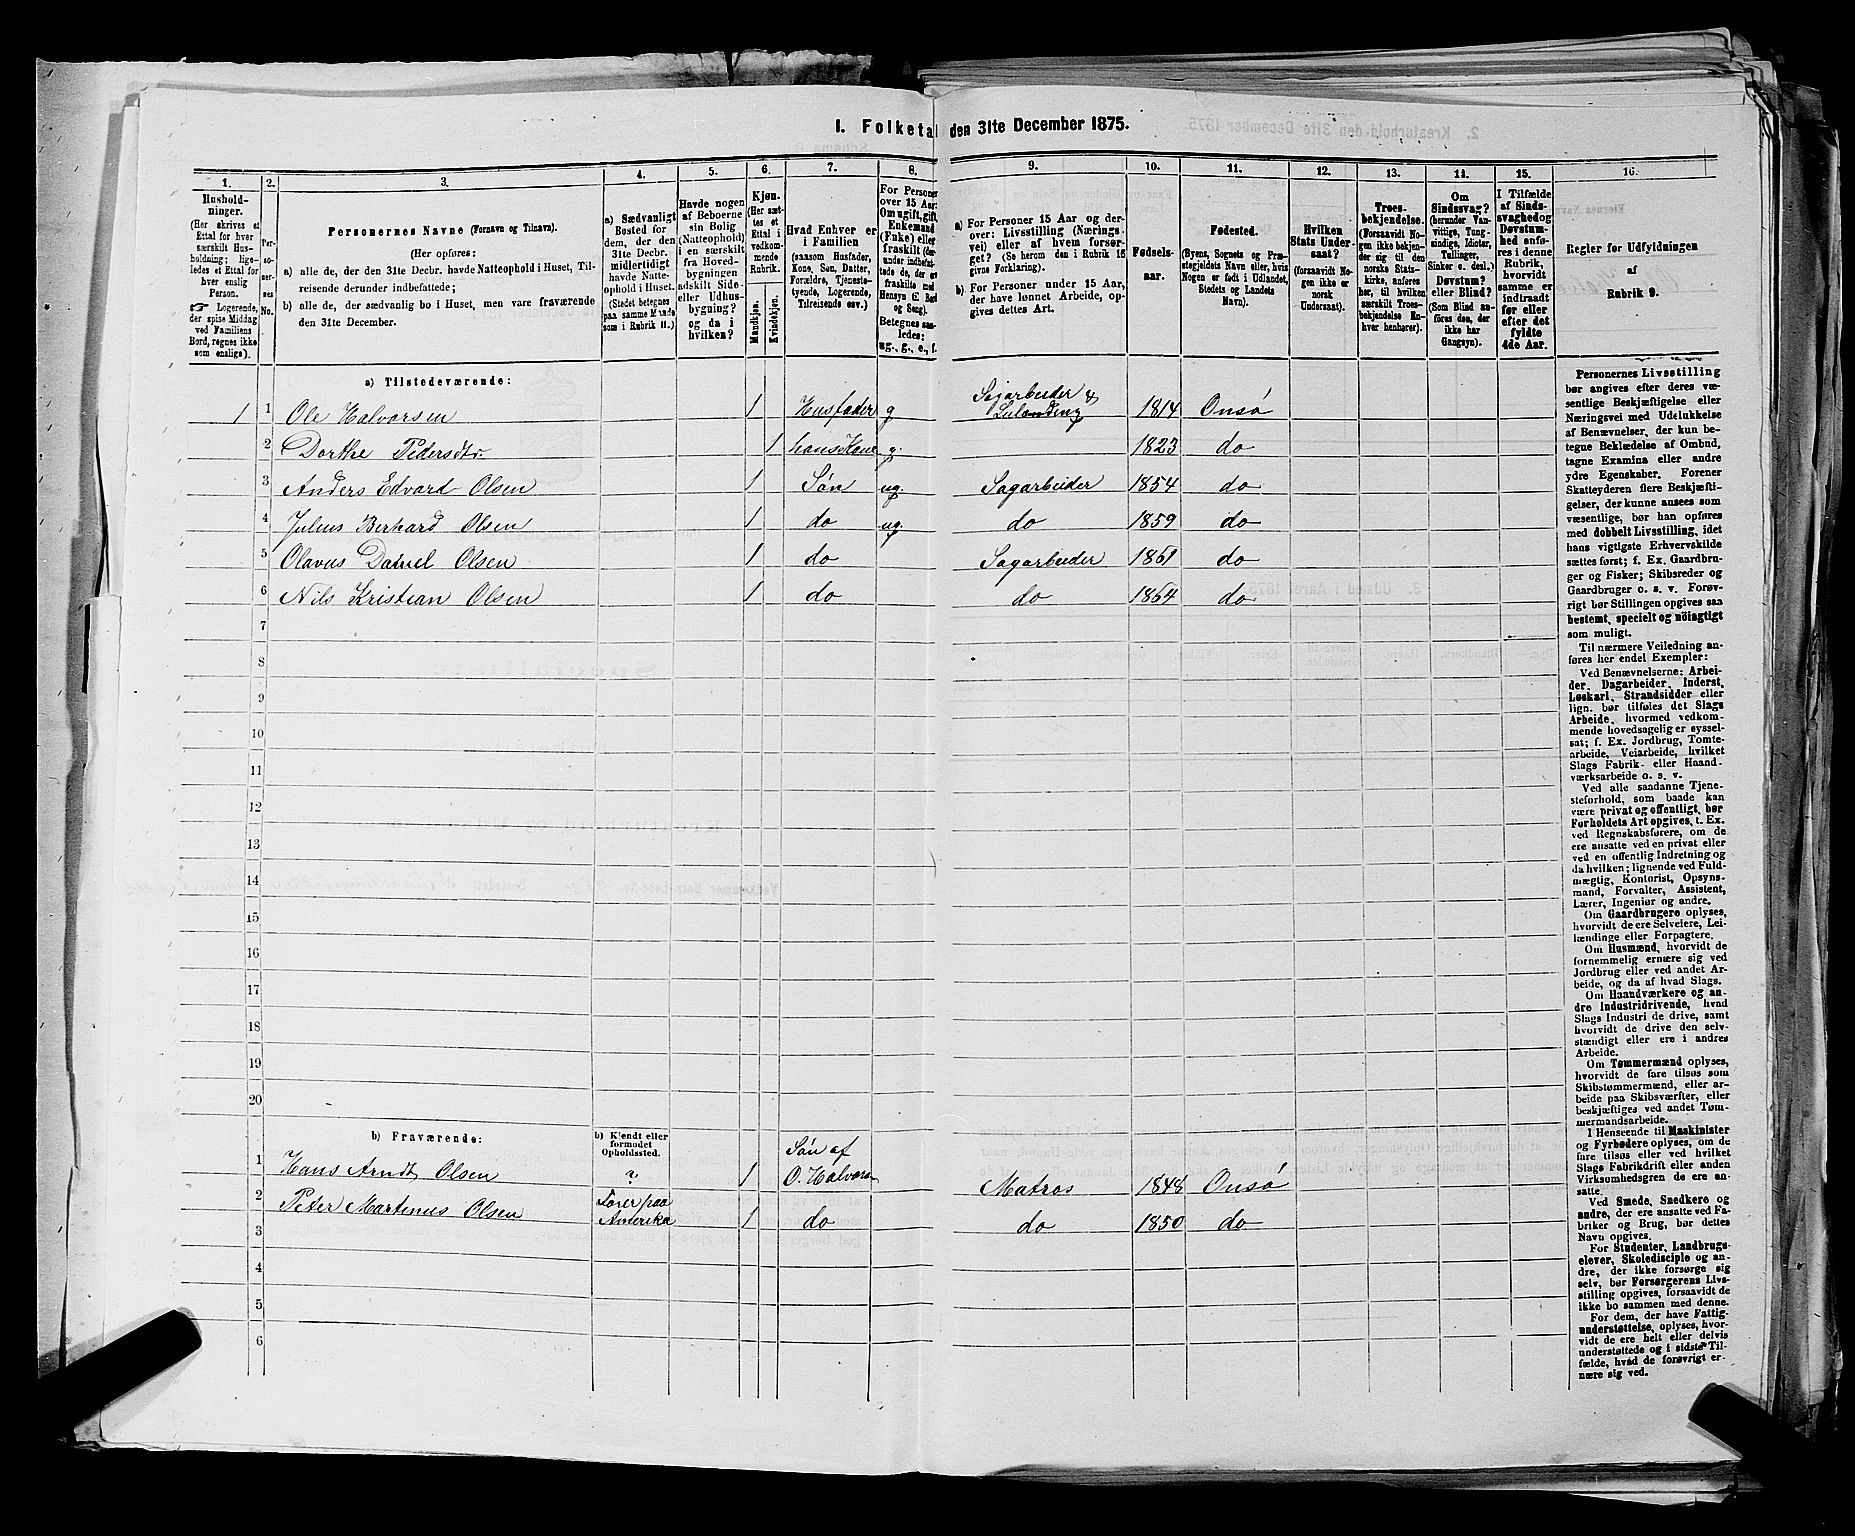 1. Folketal den 31te December 1875.
1. 2. 3. 4. 5. 6. 7. 8. 9. 10. 11. 12. 13. 14. 15. 16.
Hushold-
ninger.
(Her skrives et
Ettal for hver
særskilt Hus-
holdning; lige-
ledes et Ettal for
hver enslig
Person.
☞ Logerende,
der spise Middag
ved Familiens
Bord, regnes ikke
som enslige).
Per-
soner-
nes
No.
Personernes Navne (Fornavn og Tilnavn).
(Her opføres:
a) alle de, der den 31te Decbr. havde Natteophold i Huset, Til-
reisende derunder indbefattede;
b) alle de, der sædvanlig bo i Huset, men vare fraværende
den 31te December.
a) Sædvanligt
Bosted for
dem, der den
31te Decbr.
midlertidigt
havde Natte-
ophold i Huset.
(Stedet betegnes
paa samme Maade
som i Rubrik 11.)
Havde nogen
af Beboerne
sin Bolig
(Natteophold)
i en særskilt
fra Hoved-
bygningen
adskilt Side-
eller Udhus-
bygning?
og da i
hvilken?
Kjøn.
(Her sæt-
tes et
Ettal i
vedkom-
mende
Rubrik.
Mandkjøn.
Kvindekjøn.
Hvad Enhver er
i Familien
(saasom Husfader,
Kone, Søn, Datter,
Forældre, Tjeneste-
tyende, Logerende,
Tilreisende osv.)
For Personer
over 15 Aar:
Om ugift, gift,
Enkemand
(Enke) eller
fraskilt (der-
under indbefat-
tede de, der ere
fraskilte med
Hensyn til Bord
og Seng).
Betegnes saa-
ledes:
ug., g., e., f.
a) For Personer 15 Aar og der-
over: Livsstilling (Nærings-
vei) eller af hvem forsør-
get? (Se herom den i Rubrik 16
givne Forklaring).
b) For Personer under 15 Aar,
der have lønnet Arbeide, op-
gives dettes Art.
Fødsels-
aar.
Fødested.
(Byens, Sognets og Præ-
stegjeldets Navn eller, hvis
Nogen er født i Udlandet,
Stedets og Landets
Navn).
Hvilken
Stats Under-
saat?
(forsaavidt No-
gen ikke er
norsk
Undersaat).
Troes-
bekjendelse.
(Forsaavidt No-
gen ikke bekjen-
der sig til den
norske Stats-
kirke, anføres
her, til hvilken
særskilt Troes-
bekjendelse En-
hver henhører).
Om
Sindssvag?
(herunder Van-
vittige, Tung-
sindige, Idioter,
Tullinger,
Sinker o. desl.)
Døvstum?
eller Blind?
(Som Blind an-
føres den, der
ikke har
Gangsyn).
I Tilfælde
af Sinds-
svaghed og
Døvstum-
hed anfø-
res i denne
Rubrik,
hvorvidt
samme er
indtraadt
før eller
efter det
fyldte
4de Aar.
Regler for Udfyldningen
af
Rubrik 9.
a) Tilstedeværende:
1 1 Ole Halvorsen 1 Husfader g Sagarbeider & 1814 Onsø
2 Dorthe Pedersdtr. 1 hans Kone g. 1823 do
3 Anders Edvard Olsen 1 Søn ug. Sagarbeider 1854 do
4 Julius Berhard Olsen 1 do ug. do 1859 do
5 Olavus Daniel Olsen 1 do Sagarbeider 1861 do
6 Nils Kristian Olsen 1 do do 1864 do
7
8
9
10
11
12
13
14
15
16
17
18
19
20
b) Fraværende:
b) Kjendt eller
formodet
Opholdssted.
1 Hans Arndt Olsen ? 1 Søn af
O. Halvorsen Matros 1848 Onsø
2 Peter Martinus Olsen Farer paa
Amerika 1 do do 1850 do
3
4
5
6
Personernes Livsstilling
bør angives efter deres væ-
sentlige Beskjæftigelse eller
Næringsvei med Udelukkelse
af Benævnelser, der kun be-
tegne Beklædelse af Ombud,
tagne Examina eller andre
ydre Egenskaber. Forener
Skatteyderen flere Beskjæfti-
gelser, der kunne ansees som
væsentlige, bør han opføres
med dobbelt Livsstilling, idet
hans vigtigste Erhvervskilde
sættes først; f. Ex. Gaardbru-
ger og Fisker; Skibsreder og
Gaardbruger o. s. v. Forøv-
rigt bør Stillingen opgives saa
bestemt, specielt og nöiagtigt
som muligt.
Til nærmere Veiledning an-
føres her endel Exempler:
Ved Benævnelserne: Arbei-
der, Dagarbeider, Inderst,
Løskarl, Strandsidder eller
lign. bør tilføies det Slags
Arbeide, hvormed vedkom-
mende hovedsagelig er syssel-
sat; f. Ex. Jordbrug, Tomte-
arbeide, Veiarbeide, hvilket
Slags Fabrik- eller Haand-
værksarbeide o. s. v.
Ved alle saadanne Tjene-
steforhold, som baade kan
være privat og offentligt, bør
Forholdets Art opgives, t. Ex.
ved Regnskabsførere, om de
ere ansatte ved en privat eller
ved en offentlig Indretning og
da hvilken; lignende ved Fuld-
mægtig, Kontorist, Opsyns-
mand, Forvalter, Assistent,
Lærer, Ingeniør og andre.
Om Gaardbrugere oplyses,
hvorvidt de ere Selveiere, Lei-
lændinge eller Forpagtere.
Om Husmænd, hvorvidt de
fornemmelig ernære sig ved
Jordbrug eller ved andet Ar-
beide, og da af hvad Slags.
Om Haandværkere og an-
dre Industridrivende, hvad
Slags Industri de drive, samt
hvorvidt de drive den selv-
stændigt eller ere i andres
Arbeide.
Om Tømmermænd oplyses,
hvorvidt de fare tilsøs som
Skibstømmermænd, eller ar-
beide paa Skibsværfter, eller
beskjæftiges ved andet Tøm-
mermandsarbeide.
I Henseende til Maskinister
og Fyrbødere oplyses, om de
fare tilsøs eller ved hvilket
Slags Fabrikdrift eller anden
Virksomhedsgren de ere an-
satte.
Ved Smede, Snedkere og
andre, der ere ansatte ved Fa-
briker og Brug, bør dettes
Navn opgives.
For Studenter, Landbrugs-
elever, Skoledisciple og an-
dre, der ikke forsørge sig
selv, bør Forsørgerens Livs-
stilling opgives, forsaavidt de
ikke bo sammen med denne.
For dem, der have Fattig-
understøttelse, oplyses, hvor-
vidt de ere helt eller delvis
understøttede og i sidste Til-
fælde, hvad de forøvrigt er-
nære sig ved.